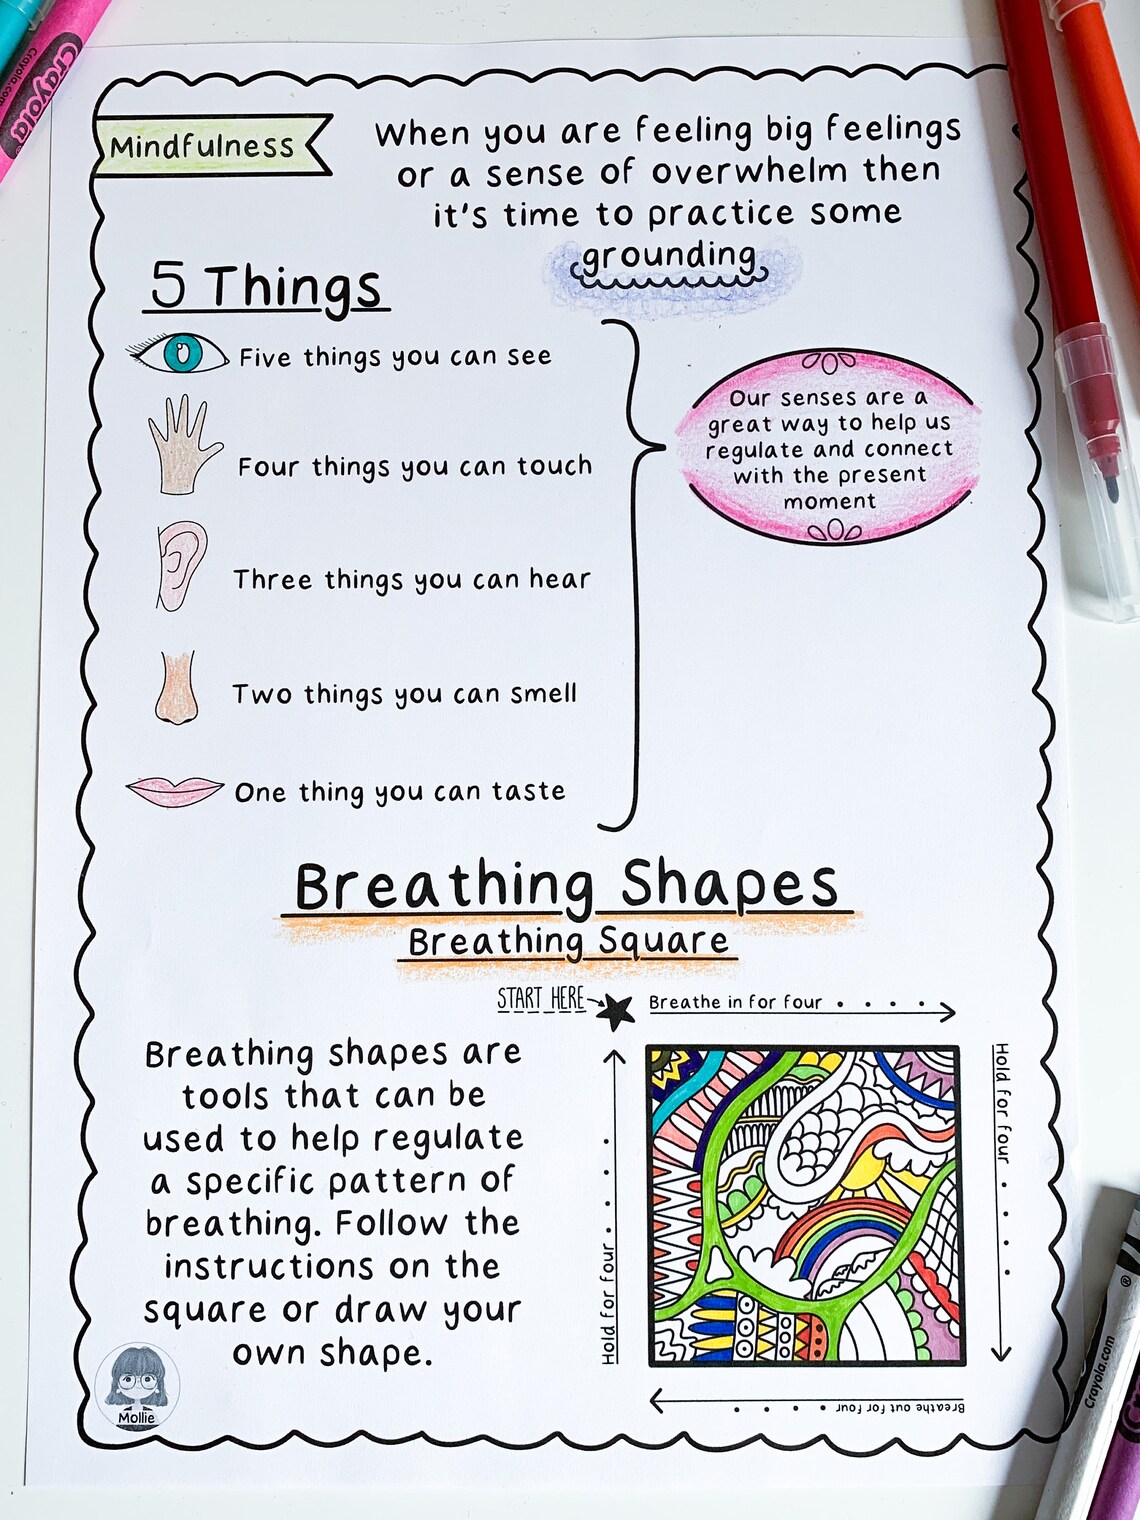 Mindfulness
When you are feeling big feelings
or a sense of overwhelm then
it's time to practice some
grounding
5 Things
Five things you can see
Four things you can touch
Three things you can hear
Two things you can smell
One thing you can taste
Our senses are a
great way to help us
regulate and connect
with the present
moment
Breathing Shapes
Breathing Square
START HERE
Breathe in for four
Hold for four
Breathe out for four
Hold for four
Breathing shapes are
tools that can be
used to help regulate
a specific pattern of
breathing. Follow the
instructions on the
square or draw your
own shape.
Mollie
Crayola
Crayola.com
Crayola.com